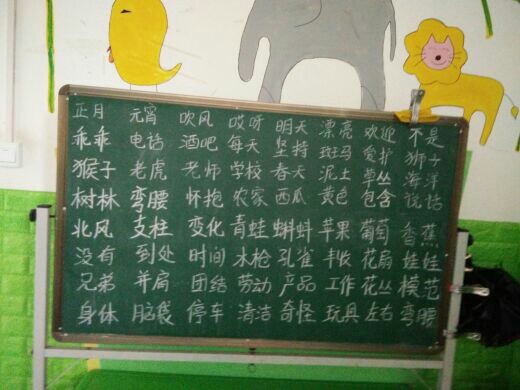 正月 元宵 吹风 哎呀 明天 漂亮 欢迎 不是
乖乖 电话 酒吧 每天 坚持 斑马 爱护 狮子
猴子 老虎 老师 学校 春天 泥土 草丛 海洋
树林 弯腰 怀抱 农家 西瓜 黄色 包含 说话
北风 支柱 变化 青蛙 蝌蚪 苹果 葡萄 香蕉
没有 到处 时间 木枪 孔雀 丰收 花扇 娃娃
兄弟 并肩 团结 劳动 产品 工作 花丛 模范
身体 脑袋 停车 清洁 奇怪 玩具 左右 弯腰